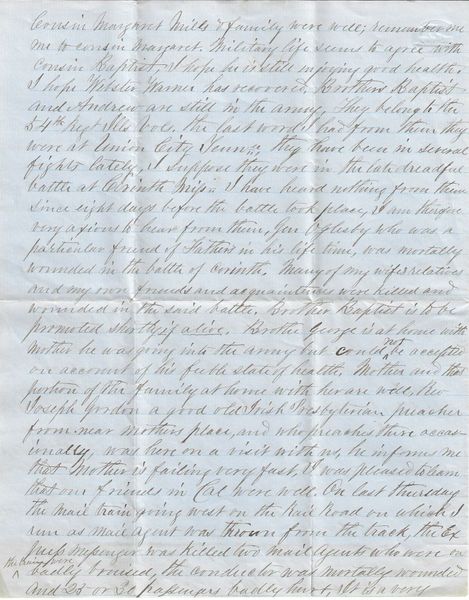 Cousin Margaret Mills & family were well; remember me
me to cousin Margaret. Military life seems to agree with
cousin Baptist, I hope he is still enjoying good health.
I hope Webster Warner has recovered. Brothers Baptist
and Andrew are still in the army. They belong to the
54th Regt Ills Vols. the last word I had from them they
were at Union City Tenn.; they have been in several
fights lately, I suppose they were in the late dreadful
battle at Corinth Miss. I have heard nothing from them
since eight days before the battle took place, I am therefore
very axious to hear from them, Gen Oglesby who was a
particular friend of Fathers in his life time, was mortally
wounded in the battle of Corinth. Many of my wife's relatives
and my own friends and acquaintances were killed and
wounded in the said battle. Brother Baptist is to be
promoted shortly if alive. Brother George is at home with
Mother he was going into the army but could not be accepted
on account of his feeble state of health. Mother and that
portion of the family at home with her are well, Rev
Joseph Gordon a good old Irish Presbyterian preacher
from near mothers place, and who preaches there occas-
ionally, was here on a visit with us, he informs me
that Mother is failing very fast, I was pleased to learn
that our friends in Cal were well. On last thursday
the mail train going west on the Rail Road on which I
run as mail agent was thrown from the track, the Ex
press messenger was killed two mail agents who were on
the train were badly bruised, the conductor was mortally wounded
and 25 or 30 passengers badly hurt, it is a very